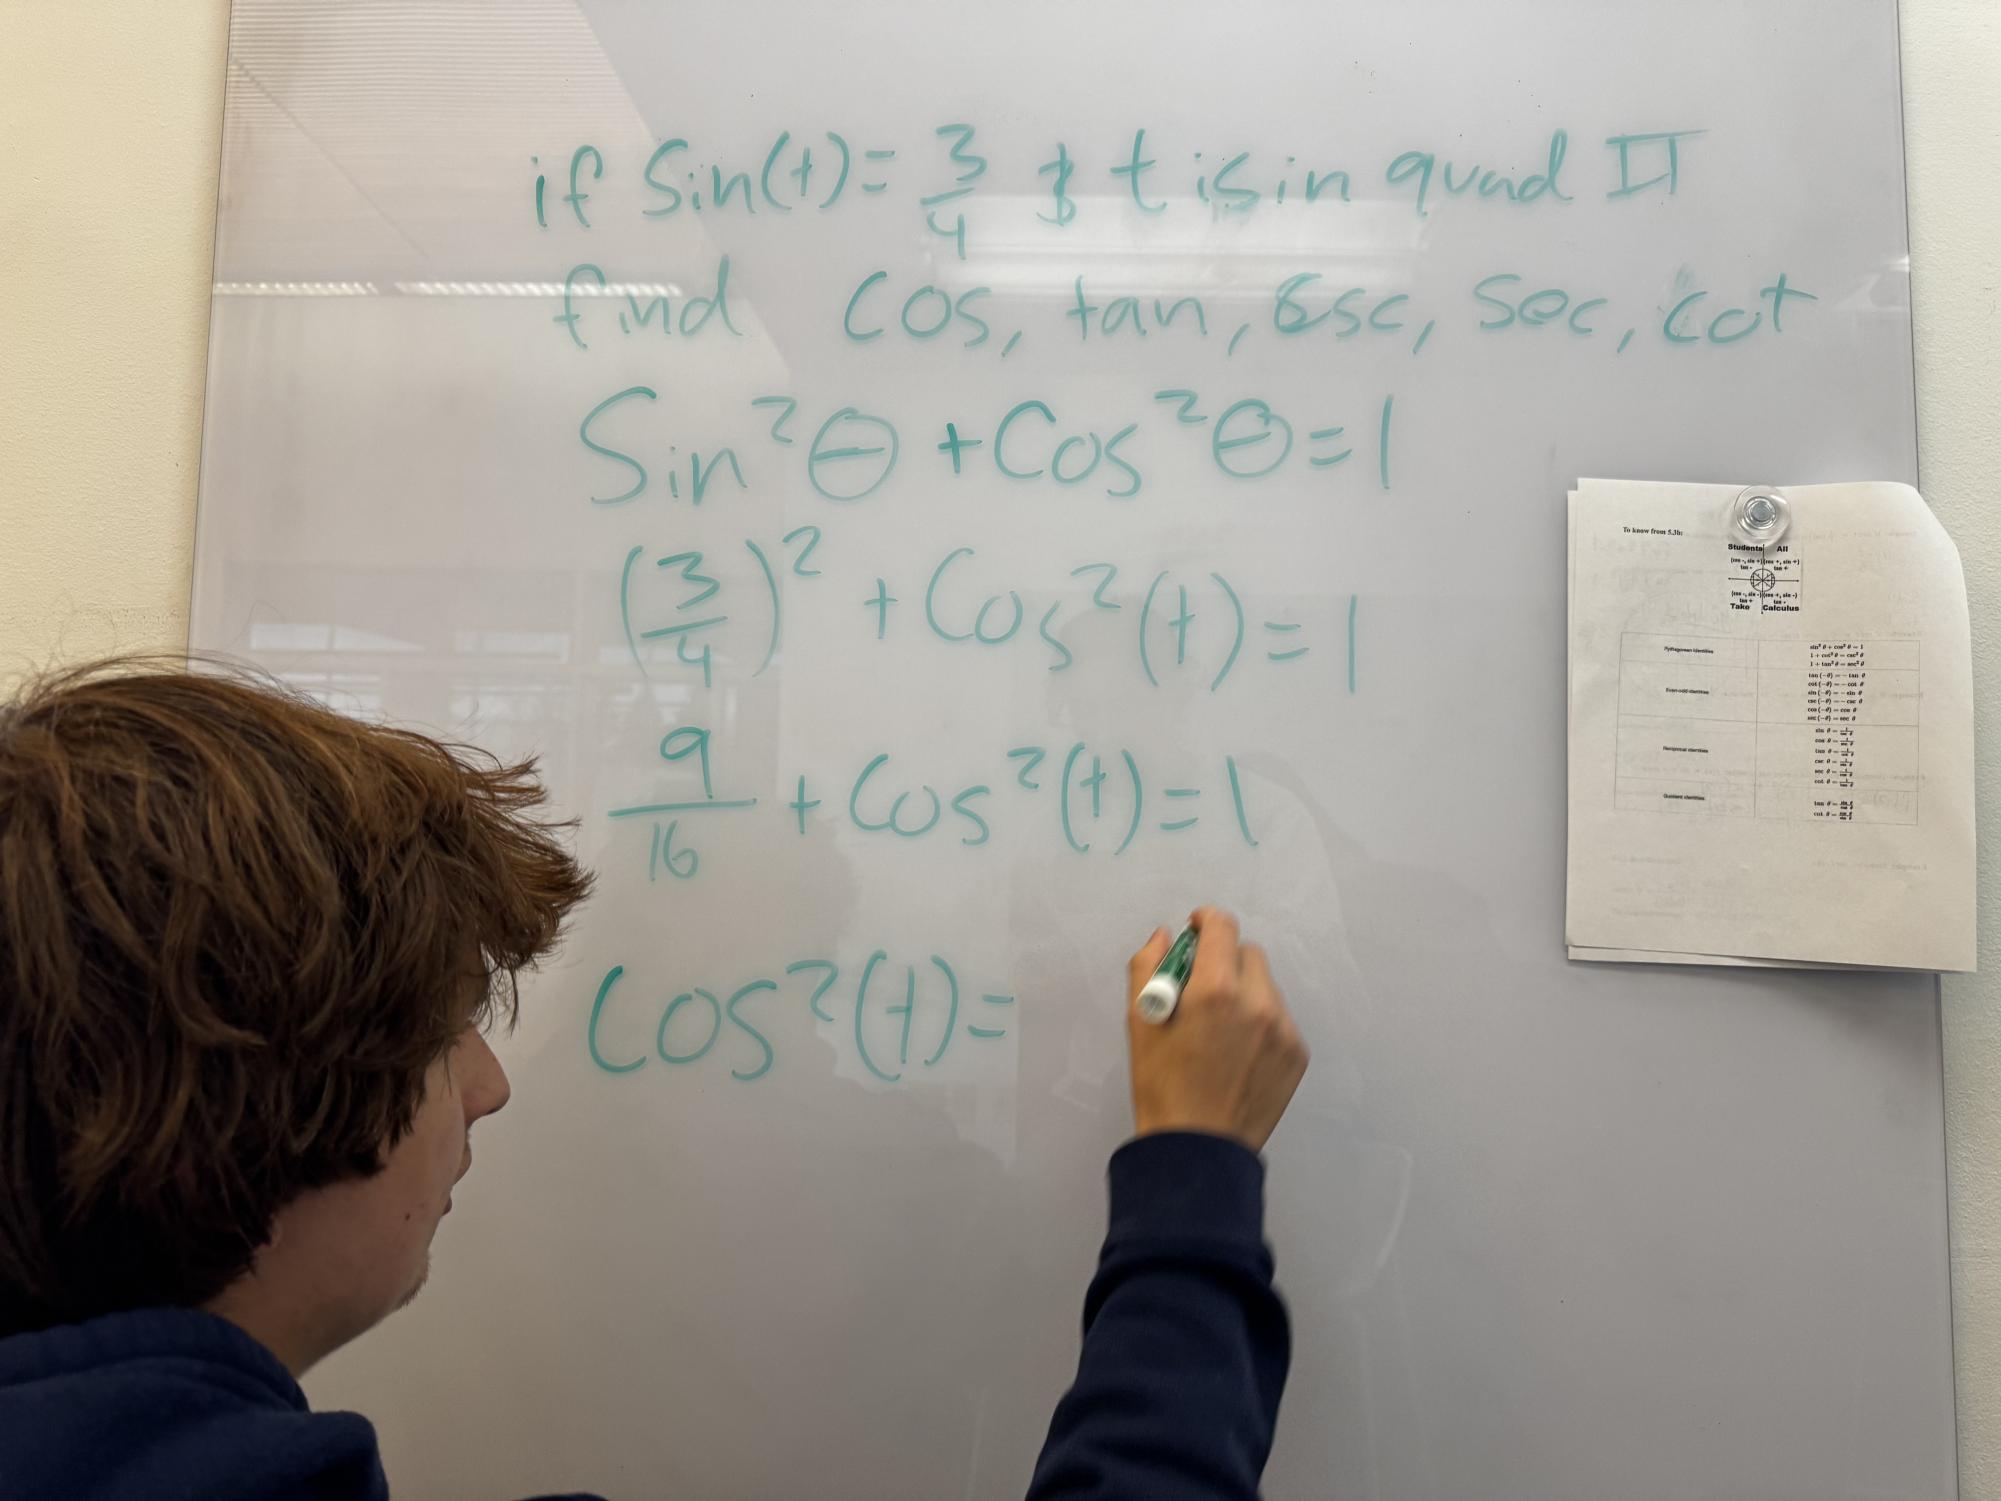 if Sin(t) = 3/4 & t is in quad II
find cos, tan, csc, sec, cot
Sin²θ + Cos²θ = 1
(3/4)² + Cos²(t) = 1
9/16 + Cos²(t) = 1
Cos²(t) =
To know from 5.3b:
Students All
(cos -, sin +) (cos +, sin +)
tan - tan +
(cos -, sin -) (cos +, sin -)
tan + tan -
Take Calculus
Pythagorean Identities
sin² θ + cos² θ = 1
1 + cot² θ = csc² θ
1 + tan² θ = sec² θ
Even-odd identities
tan (-θ) = - tan θ
cot (-θ) = - cot θ
sin (-θ) = - sin θ
csc (-θ) = - csc θ
cos (-θ) = cos θ
sec (-θ) = sec θ
Reciprocal identities
sin θ = 1/csc θ
cos θ = 1/sec θ
tan θ = 1/cot θ
csc θ = 1/sin θ
sec θ = 1/cos θ
cot θ = 1/tan θ
Quotient identities
tan θ = sin θ/cos θ
cot θ = cos θ/sin θ